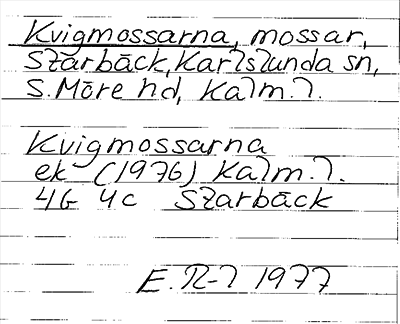 Kvigmossarna, mossar,
Slärbäck, Karlslunda sn,
S. Möre hd, Kalm. l.
Kvigmossarna
ek (1976) Kalm. l.
4G 4c Slärbäck
E. R-l 1977